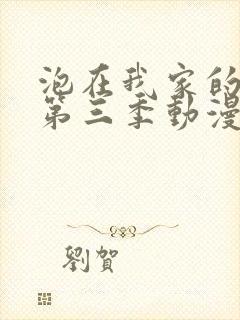 泡在我家的
第三季動漫
劉賀